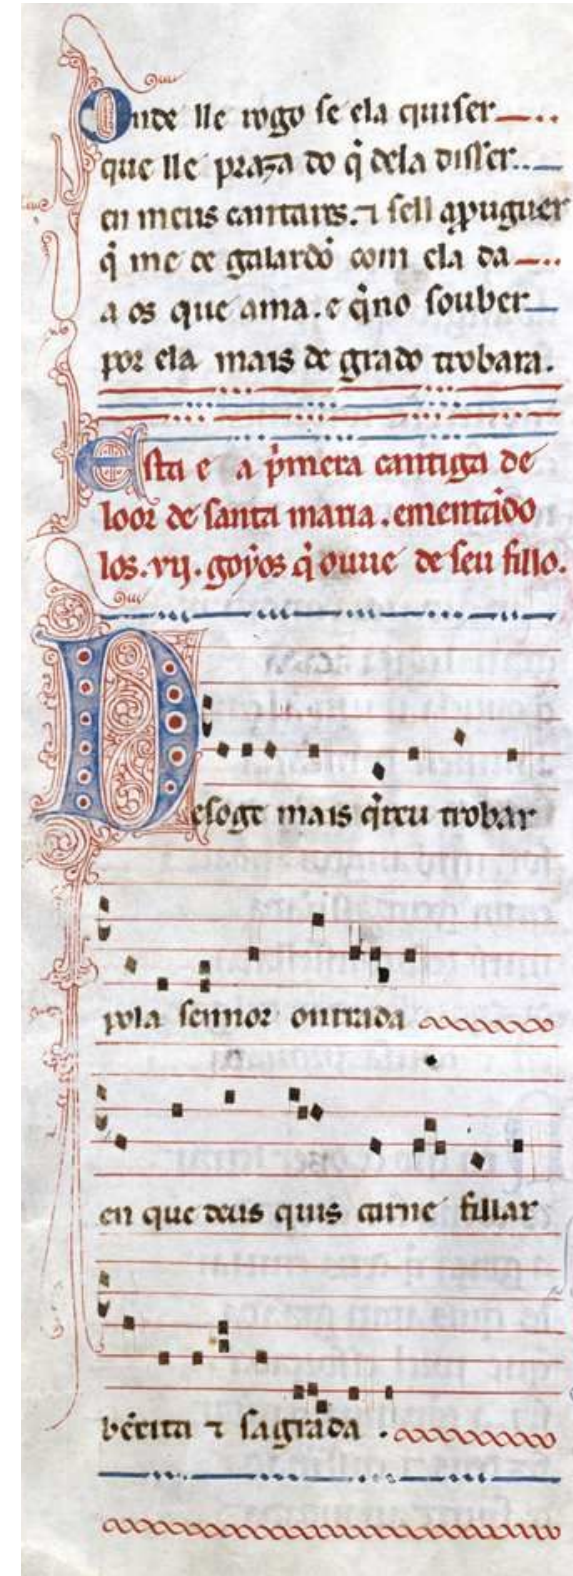 Onde lle rogo se ela quiser
que lle praza do q̇ dela disser.
en meus cantares. ⁊ sell aprouguer
q̇ me de gualardõ com ela da
a os que ama. e q̇no souber
por ela mais de grado trobara.
Esta e a p̃mera cantiga de
loor de santa maria. ementãdo
los .vij. goyos q̇ ouue de seu fillo.
Desoge mais q̇reu trobar
pola sennor onrrada
en que deus quis carne fillar
bẽeita ⁊ sagrada .